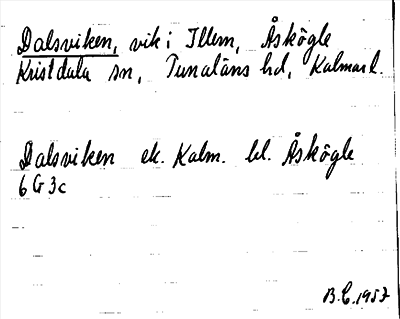 Dalsviken, vik i Illern, Åskögle
Kristdala sn, Tunaläns hd, Kalmar l.
Dalsviken ek. Kalm. bl. Åskögle
6 G 3c
B.C. 1957